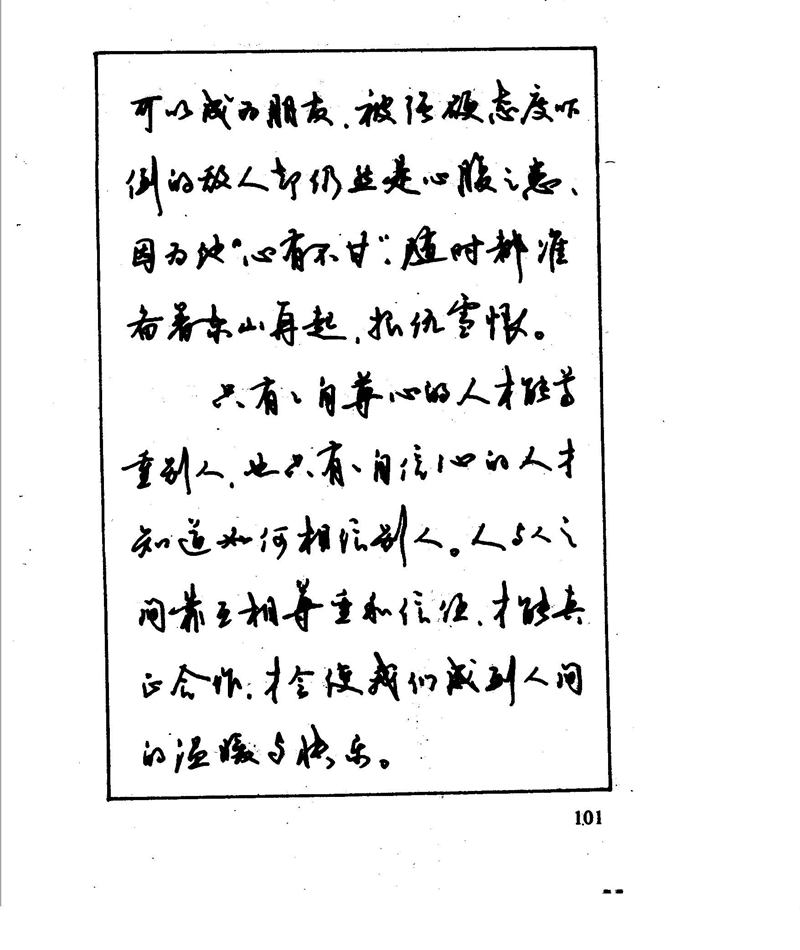 可以成为朋友，被强硬态度吓
倒的敌人却仍然是心腹之患、
因为他“心有不甘”，随时都准
备着东山再起，报仇雪恨。
只有有自尊心的人才能尊
重别人，也只有有自信心的人才
知道如何相信别人。人与人之
间靠互相尊重和信任，才能真
正合作，才会使我们感到人间
的温暖与快乐。
101